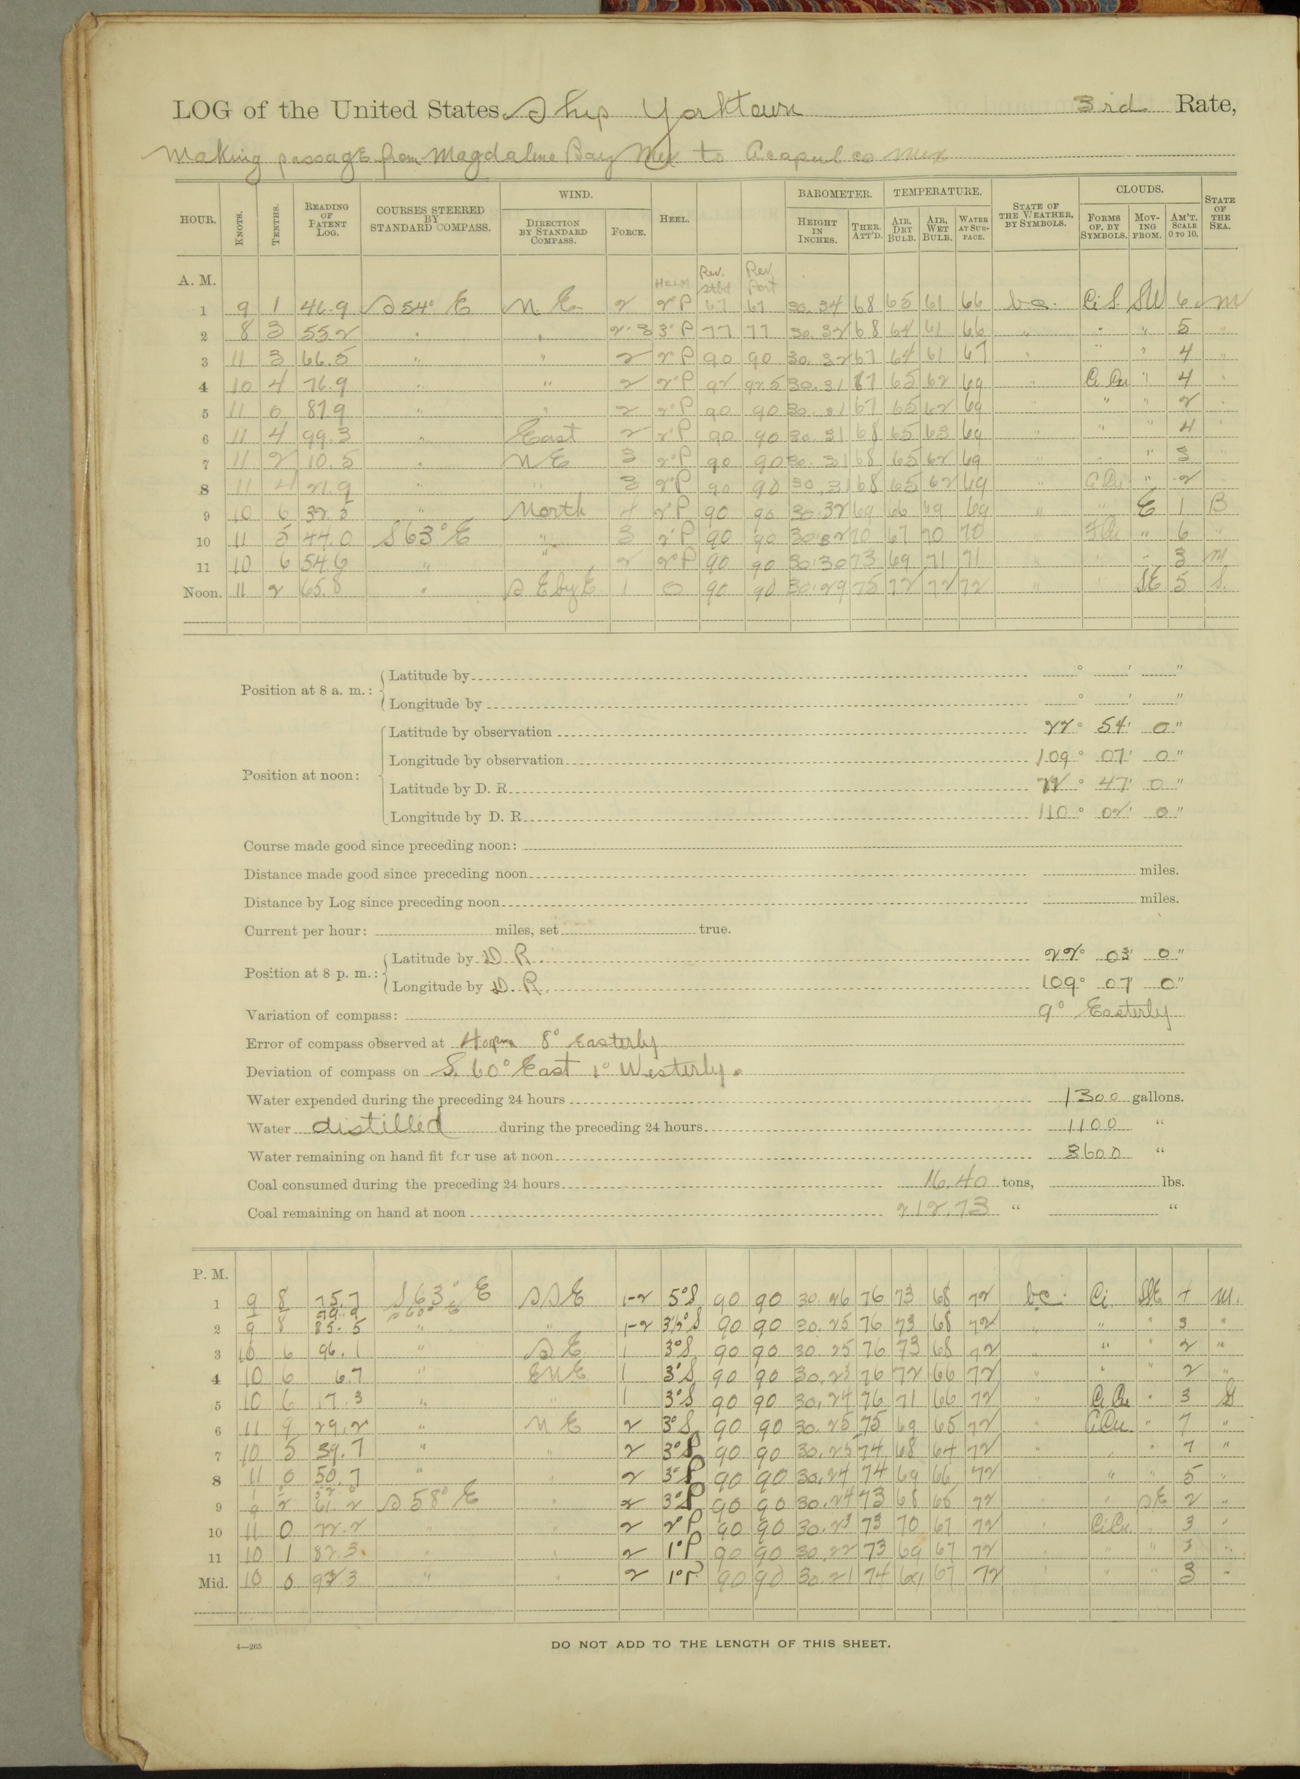 LOG of the United States Ship Yorktown 3rd Rate,
Making passage from Magdalena Bay Mex to Acapulco Mex
HOUR. KNOTS. TENTHS. READING OF PATENT LOG. COURSES STEERED BY STANDARD COMPASS. WIND. DIRECTION BY STANDARD COMPASS. FORCE. HEEL. BAROMETER. HEIGHT IN INCHES. THER. ATT'D. TEMPERATURE. AIR, DRY BULB. AIR, WET BULB. WATER AT SURFACE. STATE OF THE WEATHER, BY SYMBOLS. CLOUDS. FORMS OF, BY SYMBOLS. MOVING FROM. AM'T. SCALE 0 TO 10. STATE OF THE SEA.
A. M. Helm Rev. Stbd Rev. Port
1 9 1 46.9 S 54° E N E 2 2° P 67 67 30.34 68 65 61 66 b c. Ci S SW 6 M
2 8 3 55.2 " " 2-3 3° P 77 77 30.32 68 64 61 66 " " " 5 "
3 11 3 66.5 " " 2 2° P 90 90 30.32 67 64 61 67 " " " 4 "
4 10 4 76.9 " " 2 2° P 92 92.5 30.31 67 65 62 69 " Ci Cu " 4 "
5 11 0 87.9 " " 2 2° P 90 90 30.31 67 65 62 69 " " " 2 "
6 11 4 99.3 " East 2 2° P 90 90 30.31 68 65 63 69 " " " 4 "
7 11 2 10.5 " N E 3 2° P 90 90 30.31 68 65 62 69 " " " 3 "
8 11 4 21.9 " " 3 2° P 90 90 30.31 68 65 62 69 " Ci Cu " 2 "
9 10 6 32.5 " North 4 2° P 90 90 30.32 69 66 69 69 " " E 1 B
10 11 5 44.0 S 63° E " 3 2° P 90 90 30.32 70 67 70 70 " " 6 "
11 10 6 54.6 " " 2 2° P 90 90 30.30 73 69 71 71 " " " 3 M
Noon. 11 2 65.8 " S E by E 1 0 90 90 30.29 75 72 72 72 " " SE 5 S.
Position at 8 a. m.: Latitude by ° ' "
Longitude by ° ' "
Position at noon: Latitude by observation 22° 54' 0"
Longitude by observation 109° 07' 0"
Latitude by D. R. 22° 47' 0"
Longitude by D. R. 110° 02' 0"
Course made good since preceding noon:
Distance made good since preceding noon miles.
Distance by Log since preceding noon miles.
Current per hour: miles, set true.
Position at 8 p. m.: Latitude by D. R. 22° 03' 0"
Longitude by D. R. 109° 07' 0"
Variation of compass: 9° Easterly
Error of compass observed at 8° Easterly
Deviation of compass on S. 60° East 1° Westerly.
Water expended during the preceding 24 hours 1300 gallons.
Water distilled during the preceding 24 hours 1100 "
Water remaining on hand fit for use at noon 3600 "
Coal consumed during the preceding 24 hours 16.40 tons, lbs.
Coal remaining on hand at noon 212.73 " "
P. M.
1 9 8 75.7 S 63° E S S E 1-2 5° S 90 90 30.26 76 73 68 72 b c. Ci SE 7 M.
79.9 S 60° E
2 9 8 85.5 " " 1-2 3½° S 90 90 30.25 76 73 68 72 " " " 3 "
3 10 6 96.1 " S E 1 3° S 90 90 30.25 76 73 68 72 " " " 2 "
4 10 6 6.7 " E N E 1 3° S 90 90 30.23 76 72 66 72 " " " 2 "
5 10 6 17.3 " " 1 3° S 90 90 30.24 76 71 66 72 " Ci Cu " 3 S
6 11 9 29.2 " N E 2 3° S 90 90 30.25 75 69 65 72 " Ci Cu " 7 "
7 10 5 39.7 " " 2 3° P 90 90 30.25 74 68 64 72 " " " 7 "
8 11 0 50.7 " " 2 3° P 90 90 30.24 74 69 66 72 " " " 5 "
9 2 61.2 S 58° E " 2 3° P 90 90 30.24 73 68 65 72 " " SE 2 "
10 11 0 72.2 " " 2 2° P 90 90 30.23 73 70 67 72 " Ci Cu " 3 "
11 10 1 82.3 " " 2 1° P 90 90 30.22 73 69 67 72 " " " 3 "
Mid. 10 0 92.3 " " 2 1° P 90 90 30.21 74 69 67 72 " " " 3 "
4—265 DO NOT ADD TO THE LENGTH OF THIS SHEET.